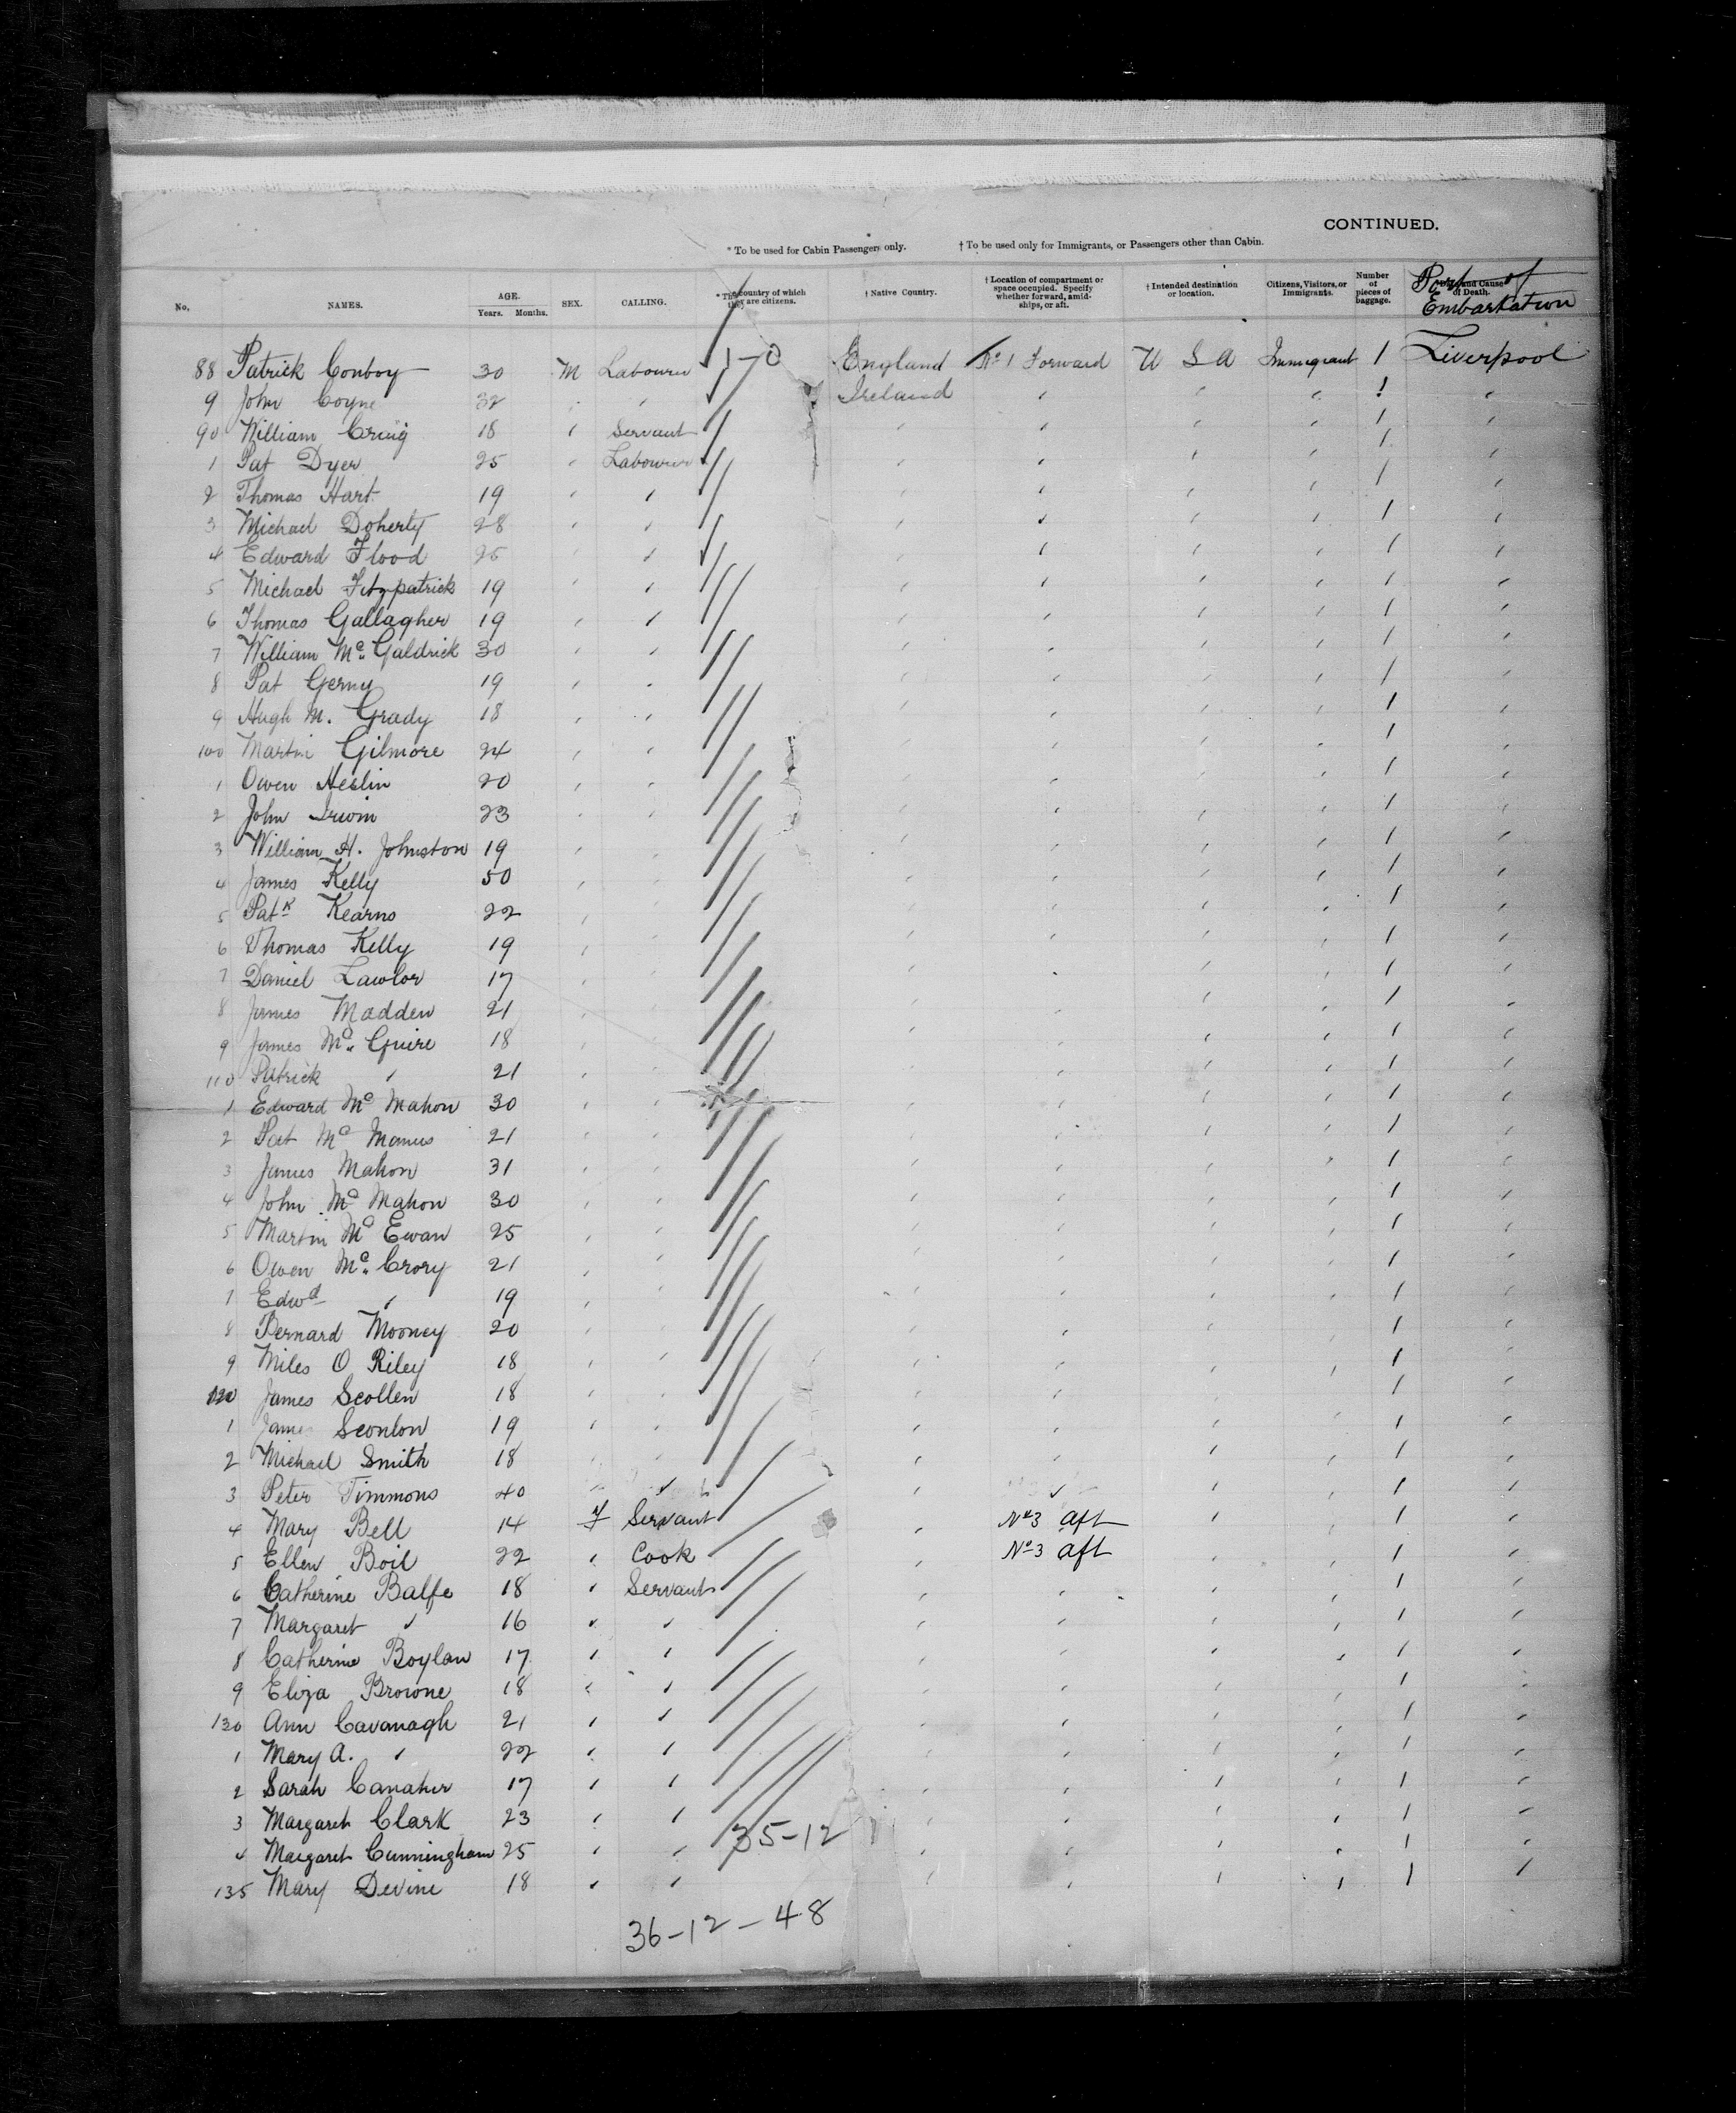 CONTINUED.
* To be used for Cabin Passengers only. † To be used only for Immigrants, or Passengers other than Cabin.
No. NAMES. AGE. Years. Months. SEX. CALLING. * The country of which they are citizens. † Native Country. † Location of compartment or space occupied. Specify whether forward, amidships, or aft. † Intended destination or location. Citizens, Visitors, or Immigrants. Number of pieces of baggage. Port of Embarkation
88 Patrick Conboy 30 M Labourer 1-0 England No 1 Forward U S A Immigrant 1 Liverpool
9 John Coyne 32 " " Ireland " " " 1 "
90 William Craig 18 " Servant " " " " 1 "
1 Pat Dyer 25 " Labourer " " " " 1 "
2 Thomas Hart 19 " " " " " " 1 "
3 Michael Doherty 28 " " " " " " 1 "
4 Edward Flood 25 " " " " " " 1 "
5 Michael Fitzpatrick 19 " " " " " " 1 "
6 Thomas Gallagher 19 " " " " " " 1 "
7 William Mc Galdrick 30 " " " " " " 1 "
8 Pat 19 " " " " " " 1 "
9 Hugh M. Grady 18 " " " " " " 1 "
100 Martin Gilmore 24 " " " " " " 1 "
1 Owen Heslin 20 " " " " " " 1 "
2 John Irwin 23 " " " " " " 1 "
3 William H. Johnston 19 " " " " " " 1 "
4 James Kelly 50 " " " " " " 1 "
5 Patk Kearns 22 " " " " " " 1 "
6 Thomas Kelly 19 " " " " " " 1 "
7 Daniel Lawlor 17 " " " " " " 1 "
8 James Madden 21 " " " " " " 1 "
9 James Mc Guire 18 " " " " " " 1 "
110 Patrick " 21 " " " " " " 1 "
1 Edward Mc Mahon 30 " " " " " " 1 "
2 Pat Mc Manus 21 " " " " " " 1 "
3 James Mahon 31 " " " " " " 1 "
4 John Mc Mahon 30 " " " " " " 1 "
5 Martin Mc Ewan 25 " " " " " " 1 "
6 Owen Mc Crory 21 " " " " " " 1 "
7 Edwd " 19 " " " " " " 1 "
8 Bernard Mooney 20 " " " " " " 1 "
9 Miles O Riley 18 " " " " " " 1 "
120 James Scollen 18 " " " " " " 1 "
1 James Sconlon 19 " " " " " " 1 "
2 Michael Smith 18 " " " " " " 1 "
3 Peter Timmons 40 " " " " " " 1 "
4 Mary Bell 14 F Servant " No 3 aft " " 1 "
5 Ellen Boil 22 " Cook " No 3 aft " " 1 "
6 Catherine Balfe 18 " Servant " " " " 1 "
7 Margaret " 16 " " " " " " 1 "
8 Catherine Boylan 17 " " " " " " 1 "
9 Eliza Browne 18 " " " " " " 1 "
130 Ann Cavanagh 21 " " " " " " 1 "
1 Mary A. " 22 " " " " " " 1 "
2 Sarah Canaher 17 " " " " " " 1 "
3 Margaret Clark 23 " " " " " " 1 "
4 Margaret Cunningham 25 " " 35-12 " " " " 1 "
135 Mary Devine 18 " " " " " " 1 "
36-12-48